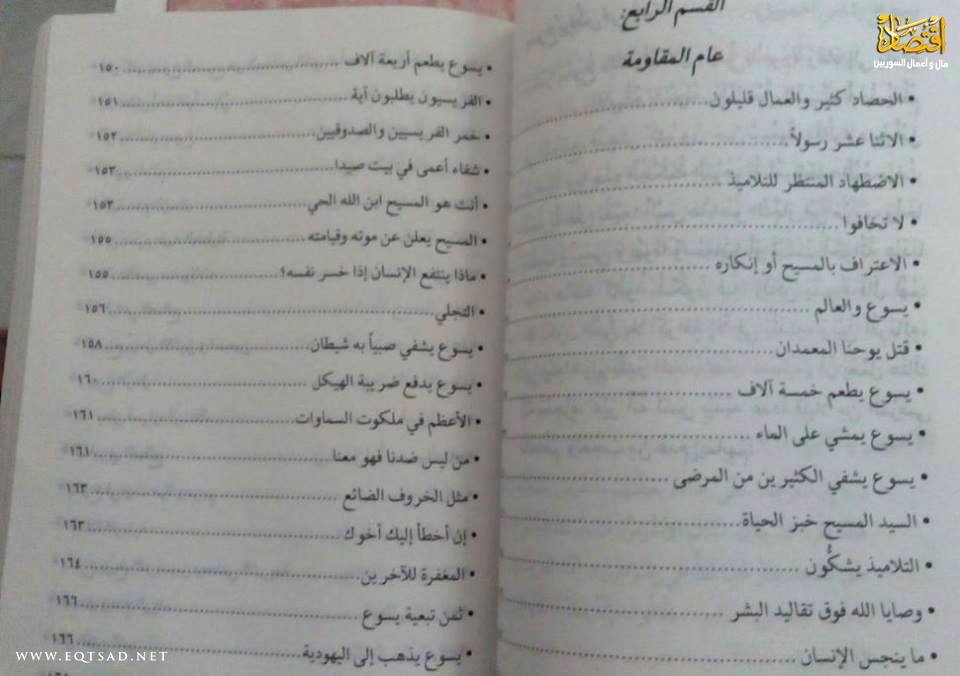 القسم الرابع:
عام المقاومة
• الحصاد كثير والعمال قليلون
• الاثنا عشر رسولاً
• الاضطهاد المنتظر للتلاميذ
• لا تخافوا
• الاعتراف بالمسيح أو إنكاره
• يسوع والعالم
• قتل يوحنا المعمدان
• يسوع يطعم خمسة آلاف
• يسوع يمشي على الماء
• يسوع يشفي الكثيرين من المرضى
• السيد المسيح خبز الحياة
• التلاميذ يشكُّون
• وصايا الله فوق تقاليد البشر
• ما ينجس الإنسان
• يسوع يطعم أربعة آلاف ١٥٠
• الفريسيون يطلبون آية ١٥١
• خمر الفريسيين والصدوقيين ١٥٢
• شفاء أعمى في بيت صيدا ١٥٣
• أنت هو المسيح ابن الله الحي ١٥٣
• المسيح يعلن عن موته وقيامته ١٥٥
• ماذا ينتفع الإنسان إذا خسر نفسه؟ ١٥٥
• التجلي ١٥٦
• يسوع يشفي صبياً به شيطان ١٥٨
• يسوع يدفع ضريبة الهيكل ١٦٠
• الأعظم في ملكوت السماوات ١٦١
• من ليس ضدنا فهو معنا ١٦١
• مثل الخروف الضائع ١٦٣
• إن أخطأ إليك أخوك ١٦٣
• المغفرة للآخرين ١٦٤
• ثمن تبعية يسوع ١٦٦
• يسوع يذهب إلى اليهودية ١٦٦
اقتصاد
مال و أعمال السوريين
WWW.EQTSAD.NET